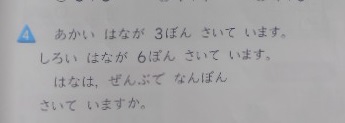 4 あかい はなが 3ぼん さいて います。
しろい はなが 6ぽん さいて います。
はなは、ぜんぶで なんぼん
さいて いますか。